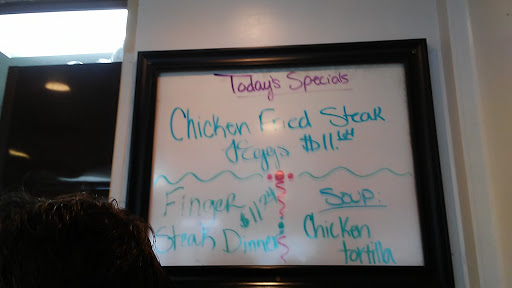 Today's Specials
Chicken Fried Steak
& Eggs $11.
Finger
Steak Dinner
$11.24
Soup:
Chicken
tortilla